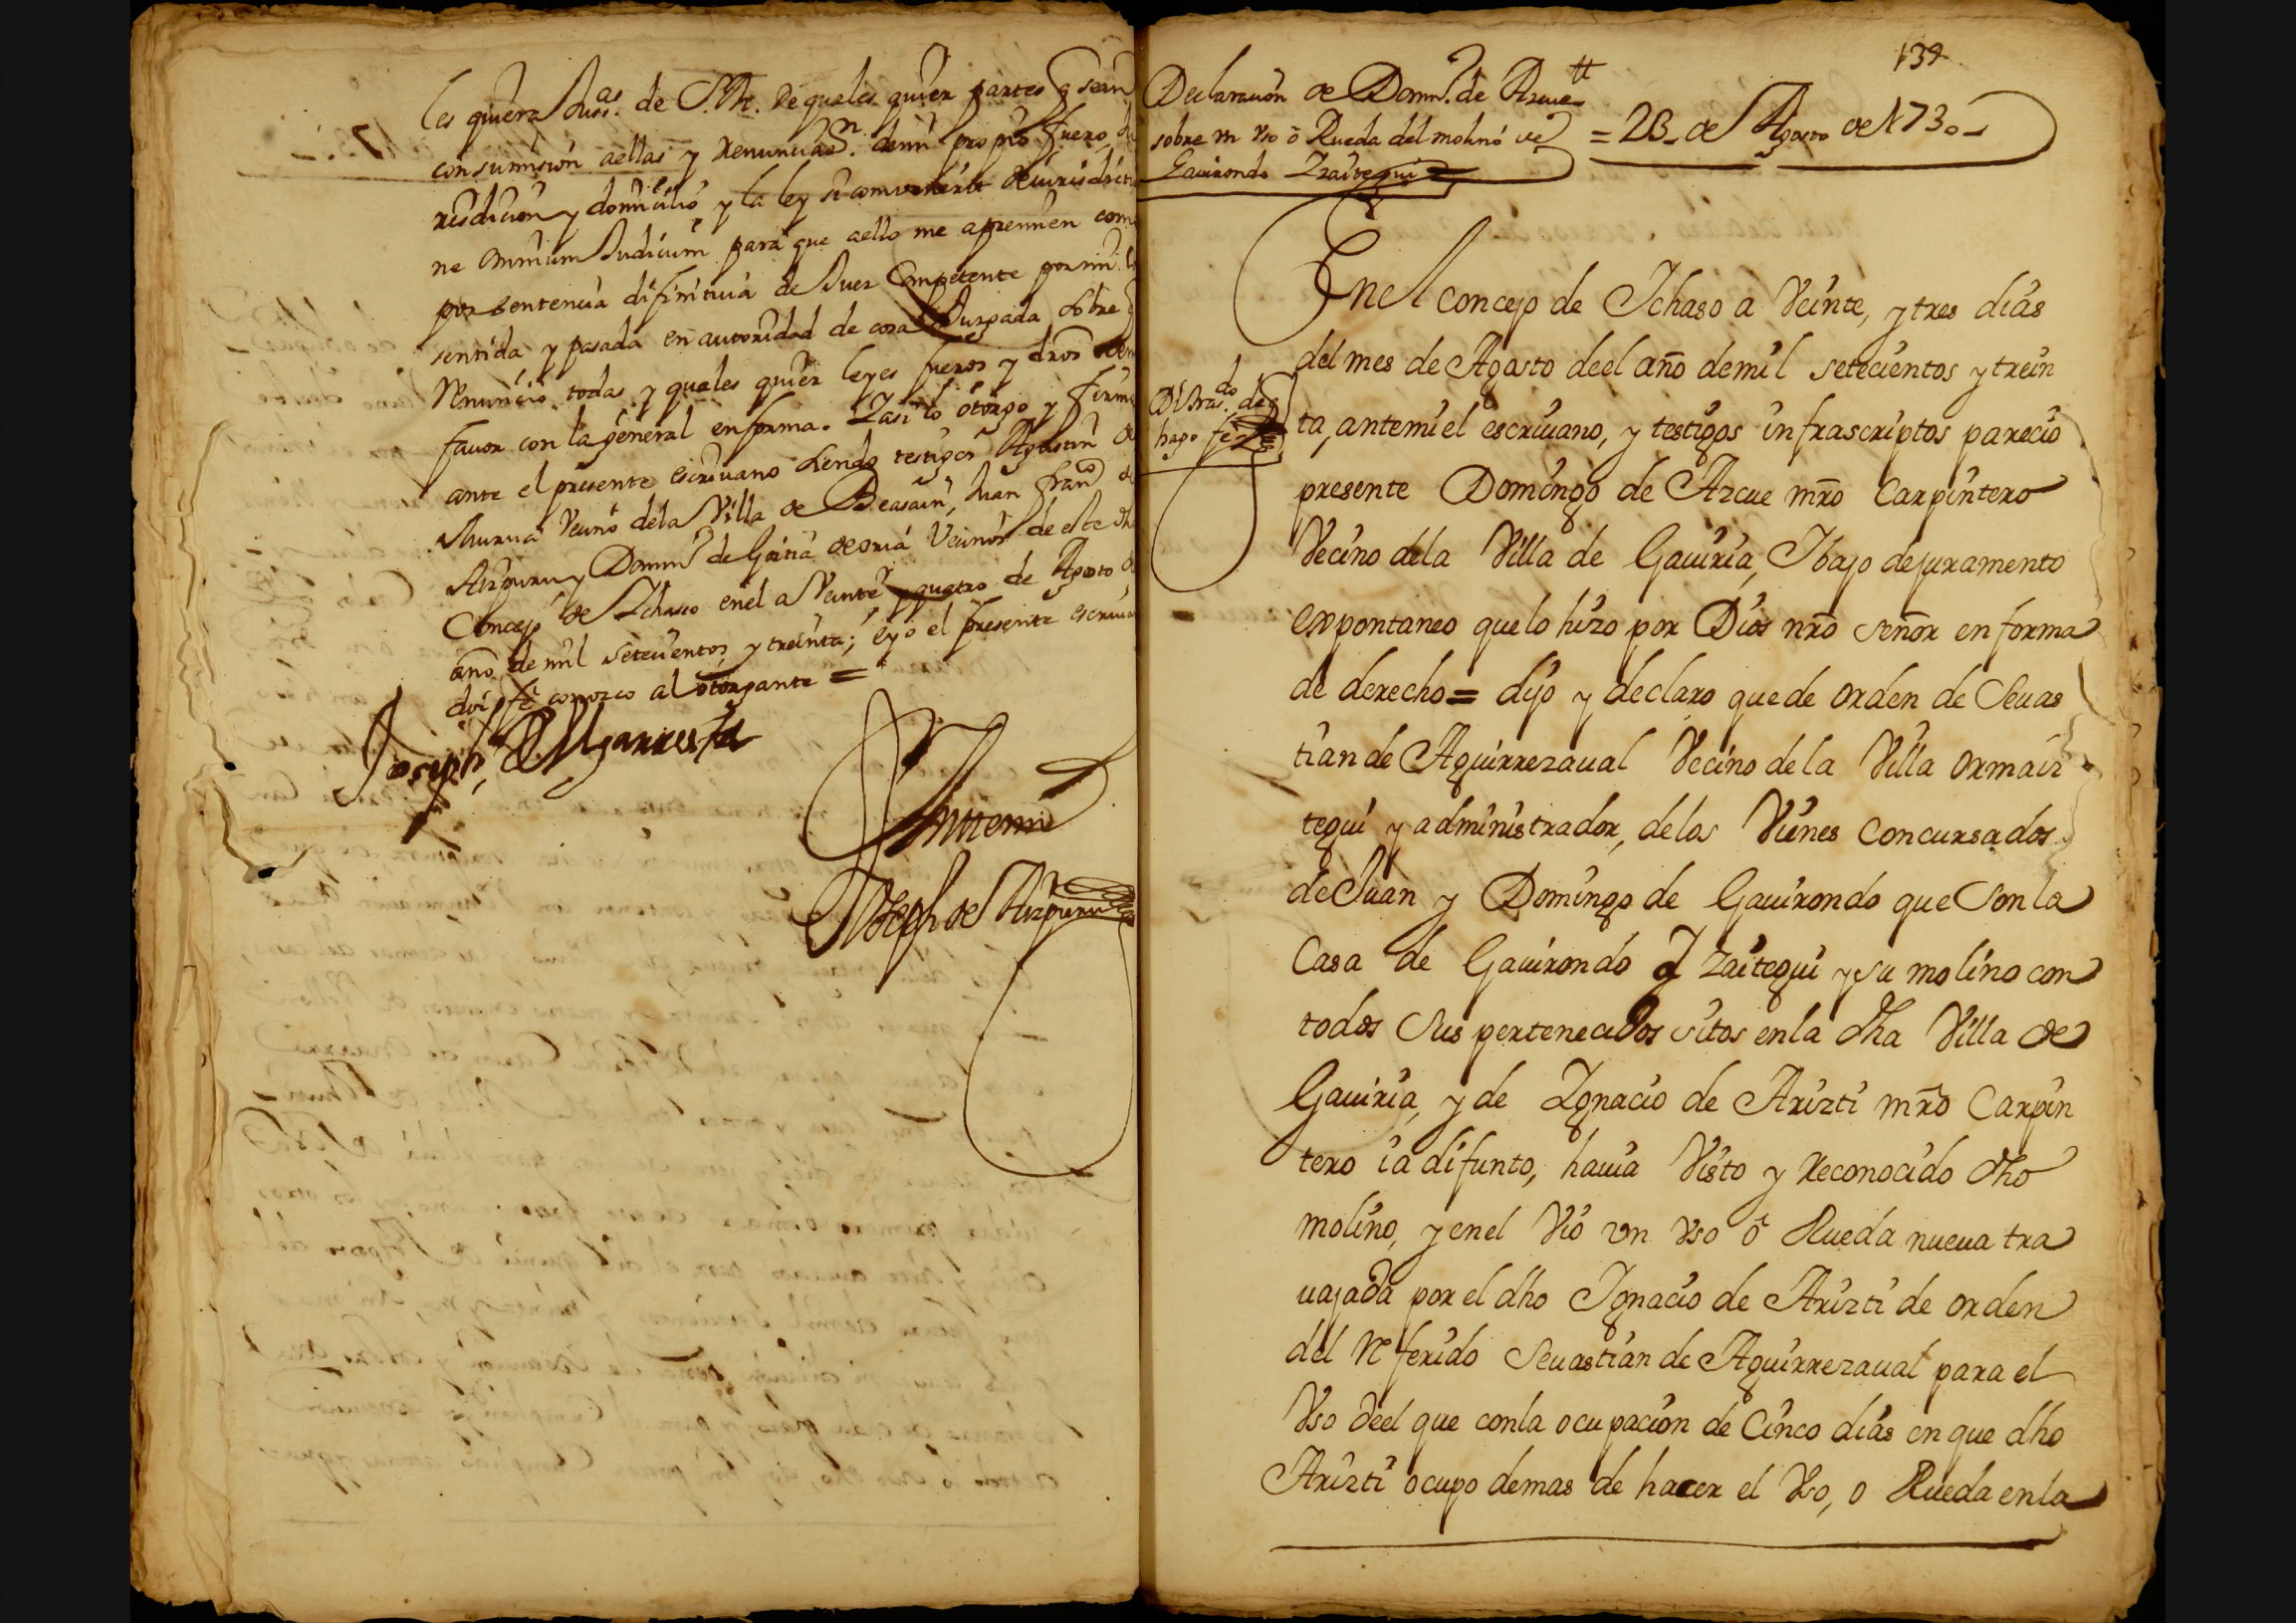 les quiera Juss.as de S. M. de quales quier partes q sean
con sumision a ellas y Renunciaz.n de mi propio fuero, Ju
risdicion y domicilio y la ley si combenerit de jurisdictio
ne omnium Judicum para que a ello me apremien como
por sentencia difinitiua de Juez Competente por mi
sentida y pasada en autoridad de cosa Juzgada sobre q
Renuncio todas y quales quier leyes fueros y dros de mi
fauor con la general en forma. Y asi lo otorgo y firmo
ante el presente escriuano siendo testigos Agustin de
Vecino de la Villa de Beasain, Juan Fran.co de
Aizpuru y Domin.o de Goitia de oria Vecinos de este dho
Concejo de Ichaso en el a Veinte y quatro de Agosto de
año de mil setecientos y treinta; e yo el presente escriua
doi fe conozco al otorgante =
Joseph de Mugarrieta
Ante mi
Joseph de Aizpuru
134
Declaracion de Domin.o de Azcue
sobre un Vso o Rueda del molino de
Gauirondo Yzaitegui
= 23 de Agosto de 1730
En el concejo de Ichaso a Veinte, y tres dias
del mes de Agosto de el año de mil setecientos y trein
ta, ante mi el escriuano, y testigos infrascriptos parecio
presente Domingo de Azcue mro Carpintero
Vecino de la Villa de Gauiria, I bajo de juramento
expontaneo que lo hizo por Dios nro señor en forma
de derecho = dijo y declaro que de orden de Seuas
tian de Aguirrezaual Vecino de la Villa Ormaiz
tegui y administrador, de los Vienes Concursados
de Juan y Domingo de Gauirondo que son la
Casa de Gauirondo Y Zaitegui y su molino con
todos sus pertenecidos sitos en la dha Villa de
Gauiria, y de Ignacio de Arizti mro Carpin
tero ia difunto, hauia Visto y Reconocido dho
molino, y en el Vio vn Vso o Rueda nueua tra
uajada por el dho Ignacio de Arizti de orden
del Referido Seuastian de Aguirrezaual para el
Vso de el que con la ocupacion de Cinco dias en que dho
Arizti ocupo demas de hacer el Vso, o Rueda en la
Di tras.do de
hago fe